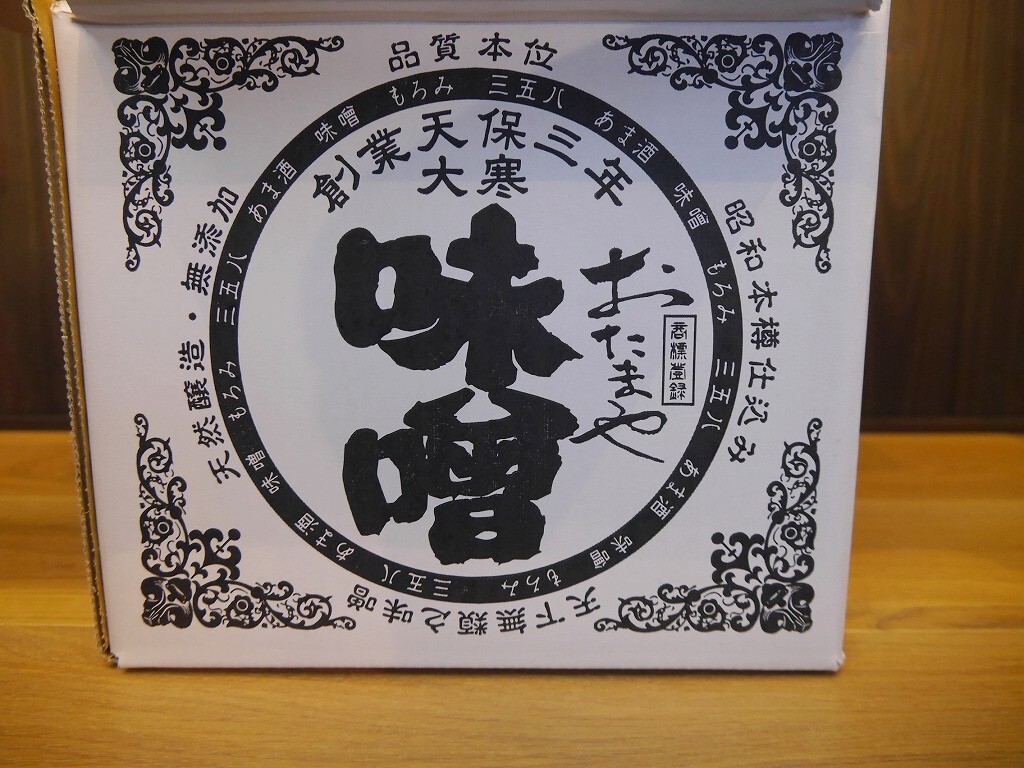 品質本位
もろみ 三五八 あま酒 味噌 もろみ 三五八 あま酒 味噌 もろみ 三五八 あま酒 味噌 もろみ 三五八 あま酒 味噌
創業天保三年
大寒
味噌
おたまや
商標登録
昭和本樽仕込み
天下無類之味噌
天然醸造・無添加